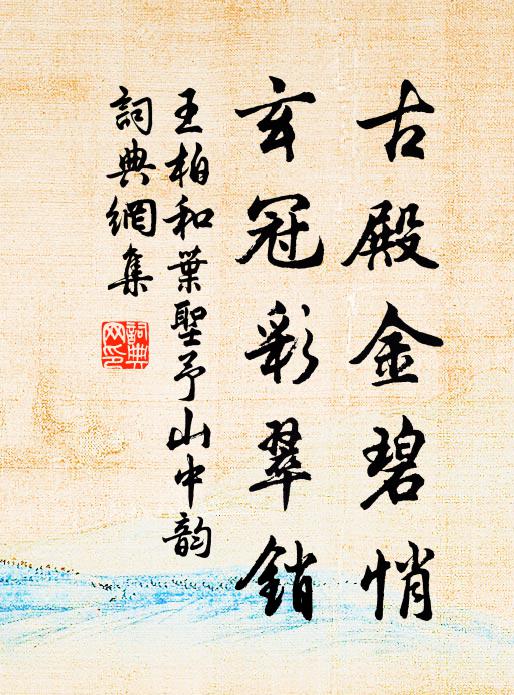 古殿金碧悄
玄冠彩翠銷
王柏和葉聖予山中韵
詞典網集
詞典
网印